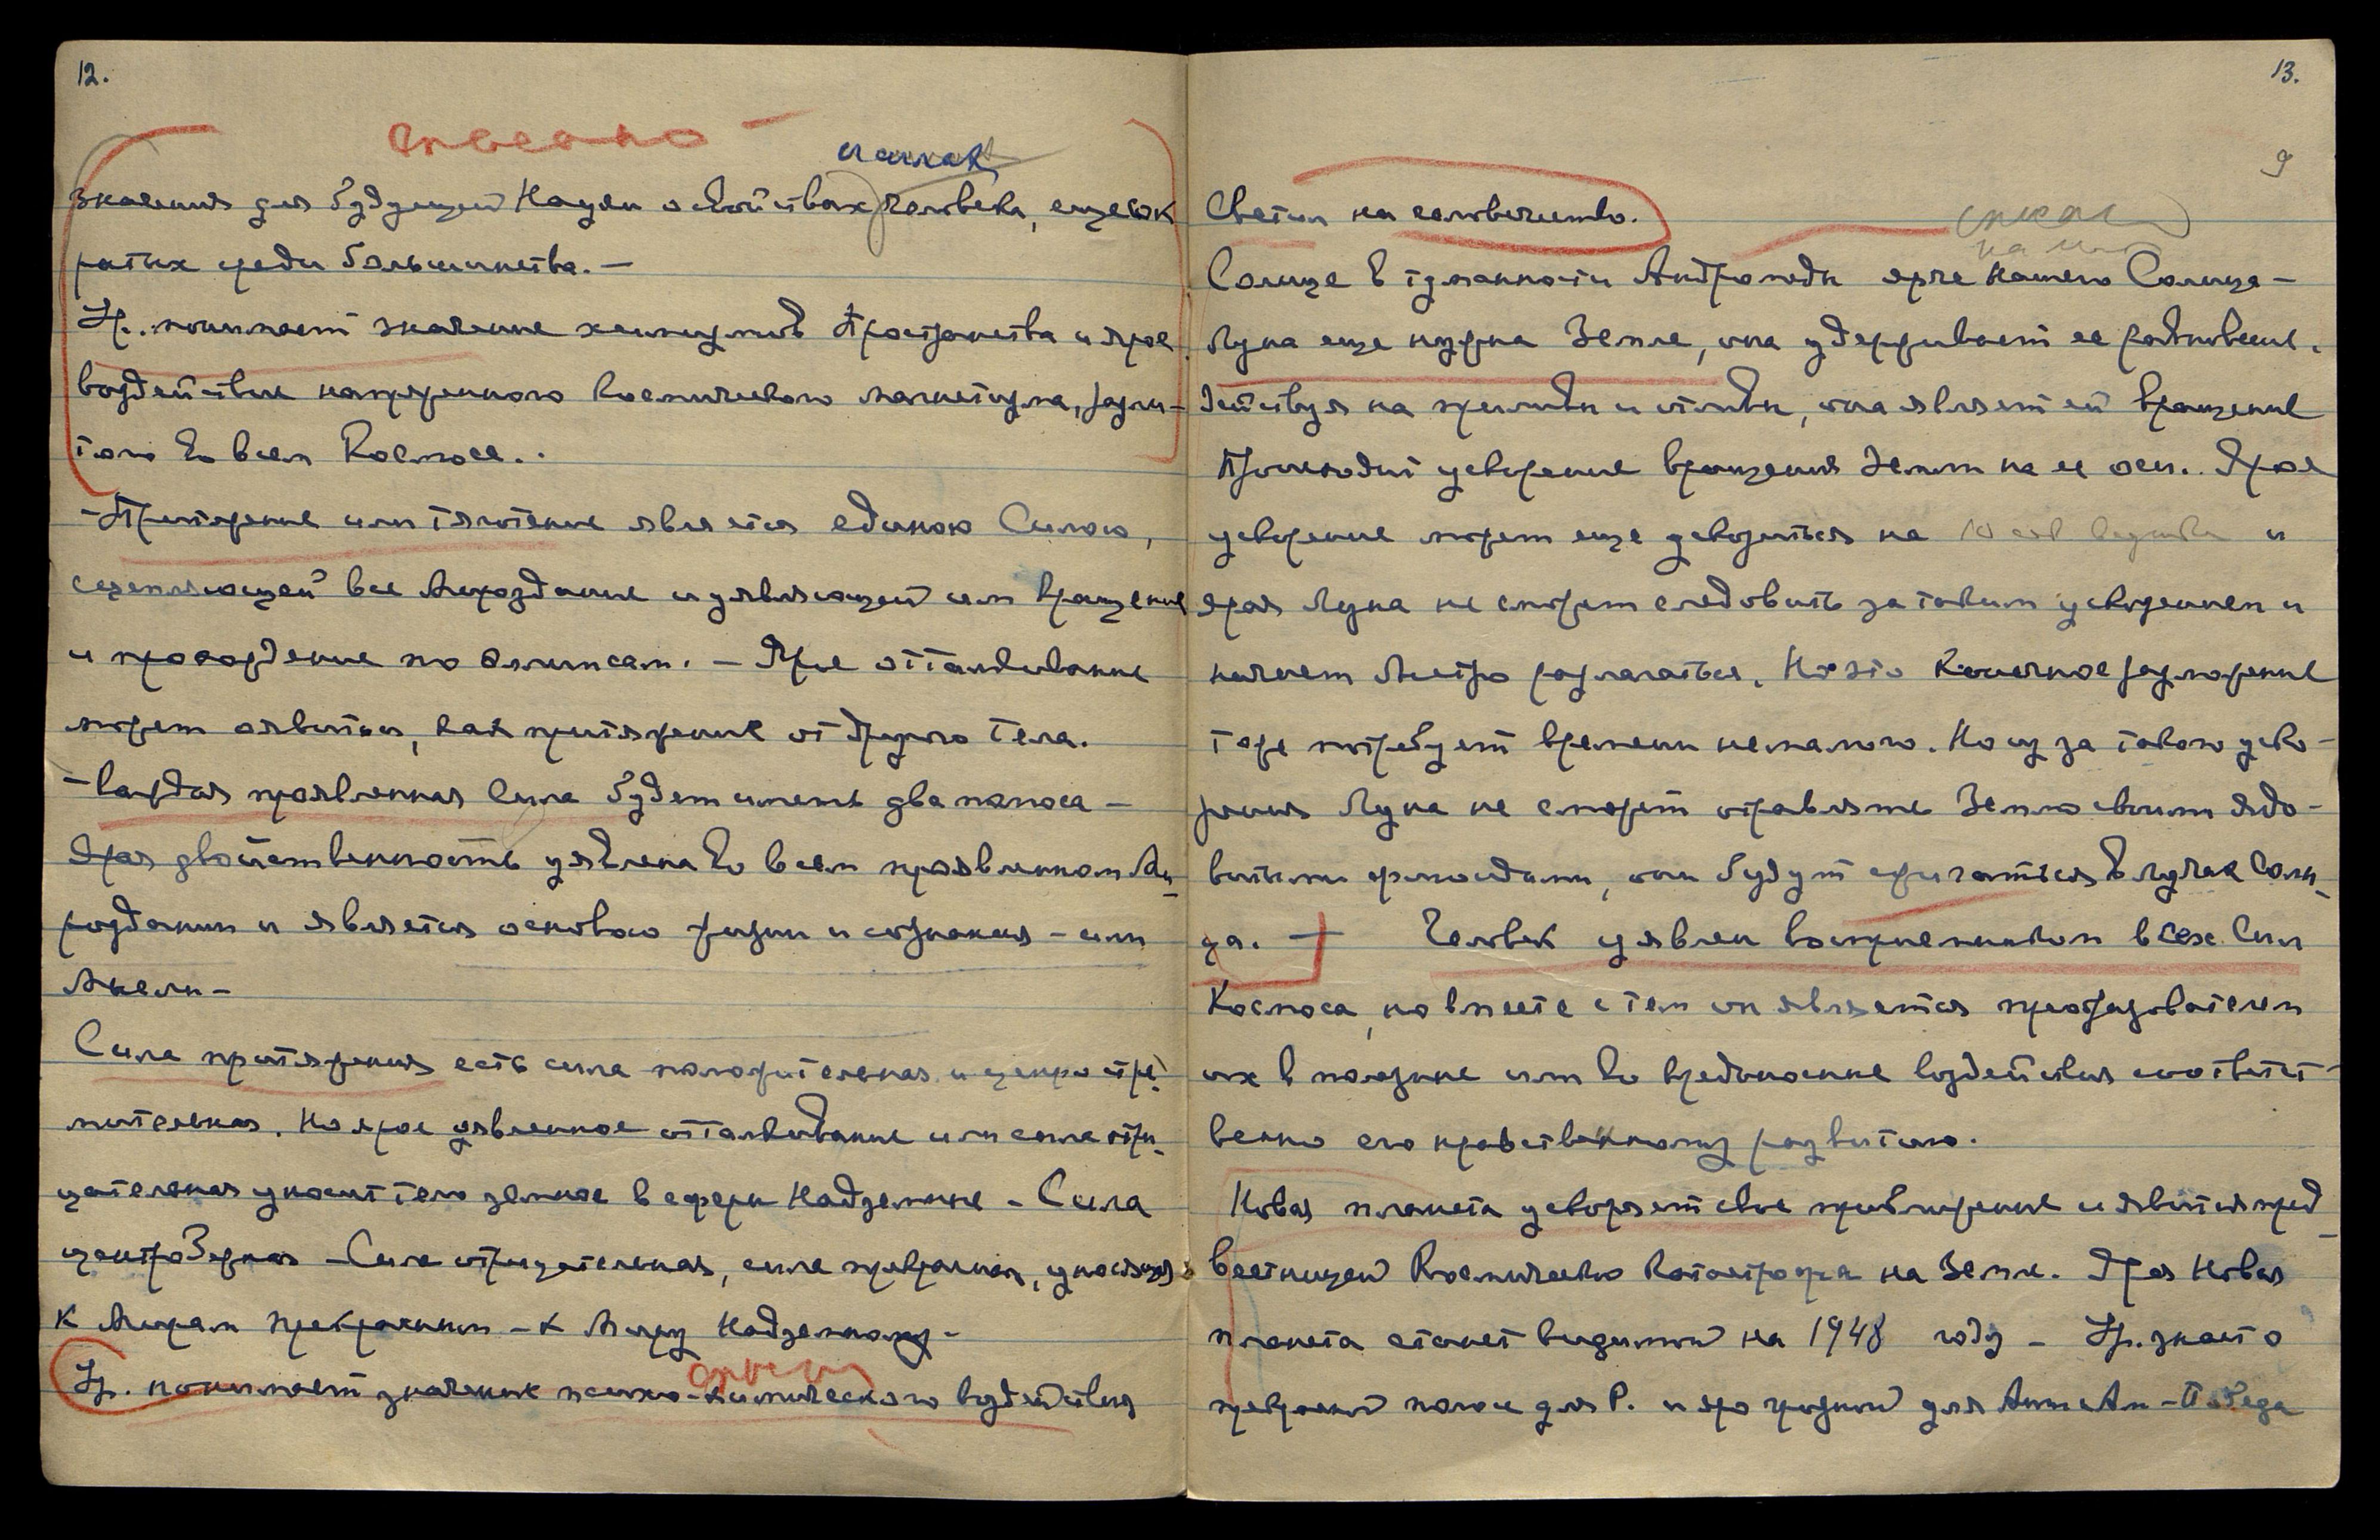 12.
значения для будущей Науки о свойствах человека, еще сок
рытых среди большинства. —
Ур. понимает значение химизмов Пространства и ярое
воздействие напряженного Космического магнетизма, разли-
того во всем Космосе..
- Притяжение или тяготение является единою Силою,
сцепляющей все Мироздание и уявляющей им вращение
и прохождение по эллипсам. — Ярое отталкивание
может явиться, как притяжение от другого тела.
- Каждая проявленная Сила будет иметь два полюса —
Ярая двойственность уявлена во всем проявленном Ми-
роздании и является основою жизни и сознания — или
Мысли —
Сила притяжения есть сила положительная и центростре-
мительная. Но ярое уявленное отталкивание или сила отри-
цательная уносит тело земное в сферы Надземные — Сила
центробежная — Сила отрицательная, сила прекрасная, уносящая
к Мирам прекрасным — к Миру Надземному —
Ур. понимает значение психо-химического воздействия
13.
9
Светил на человечество.
Солнце в туманности Андромеды ярче нашего Солнца —
Луна еще нужна Земле, она удерживает ее равновесие.
Действуя на приливы и отливы, она являет ей вращение
Происходит ускорение вращения Земли на ее оси. Ярое
ускорение может еще ускориться на 10 и
ярая Луна не сможет следовать за таким ускорением и
начнет быстро разлагаться. Но это конечное разложение
тоже потребует времени немалого. Но из за такого уско-
рения Луна не сможет отравлять Землю своими ядо-
витыми флюидами, они будут сжигаться в лучах Солн-
ца. — Человек уявлен восприемником всех Сил
Космоса, но вместе с тем он является преобразователем
их в полезные или во вредоносные воздействия соответст-
венно его нравственному развитию.
Новая планета ускоряет свое приближение и явится пред-
вестницей Космической Катастрофы на Земле. Ярая Новая
планета станет видимой на 1948 году — Ур. знает о
прекрасной полосе для Р. и яро грозной для — Победа